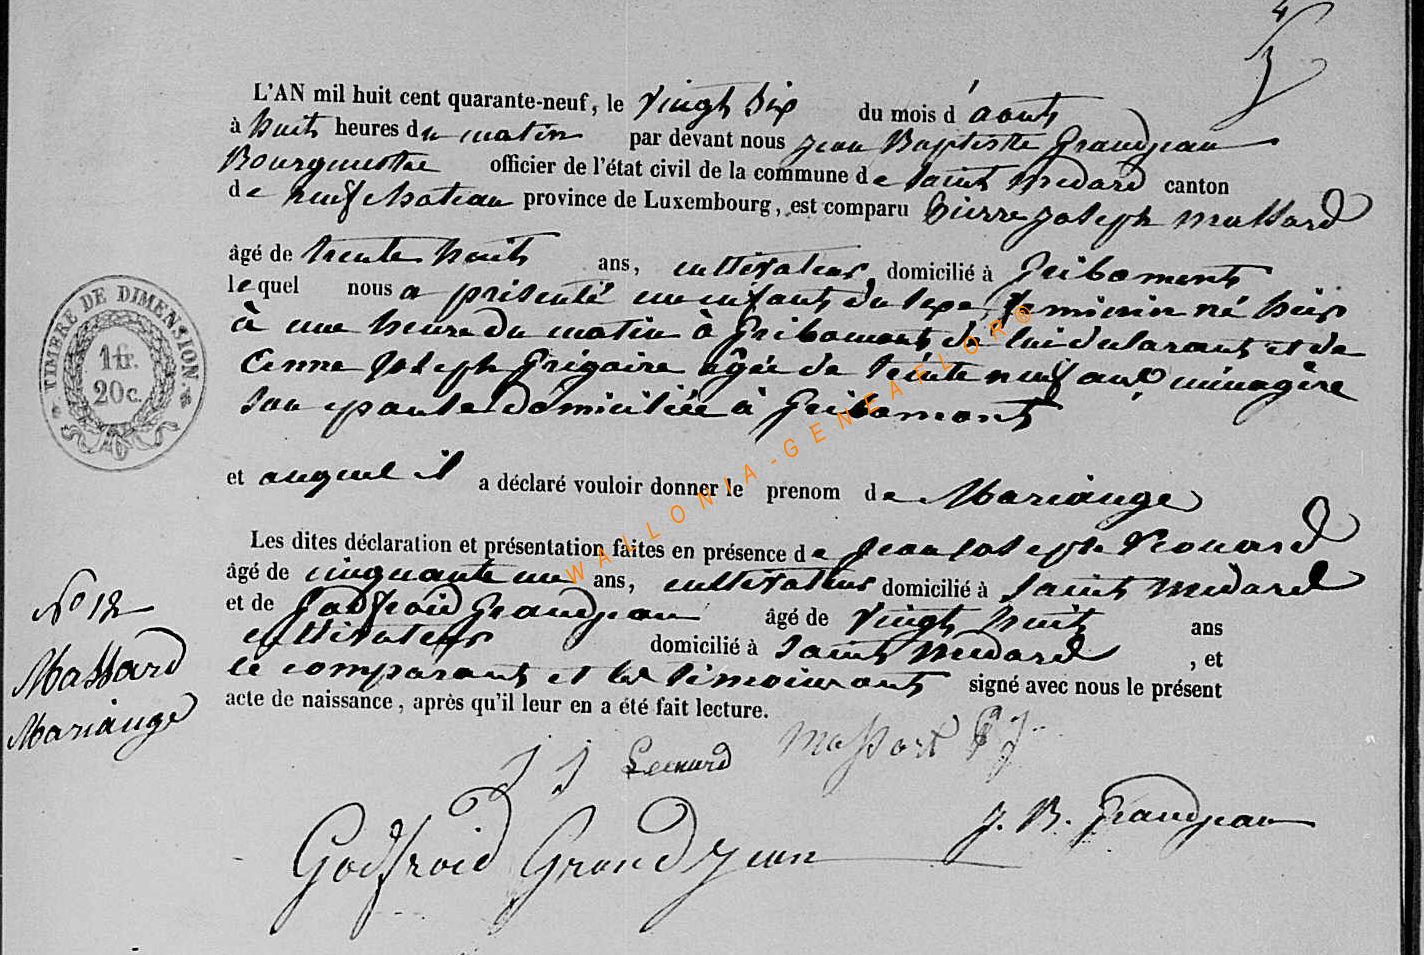 4
L'AN mil huit cent quarante-neuf, le vingt six du mois d'aout
à huit heures du matin par devant nous jean Baptiste Grandjean
Bourgmestre officier de l'état civil de la commune de saint medard canton
de neufchateau province de Luxembourg, est comparu Pierre joseph Massard
âgé de trente huit ans, cultivateur domicilié à Gribomont
lequel nous a présenté un enfant du sexe feminin né hier
à une heure du matin à Gribomont de lui declarant et de
Anne Joseph Grigoire agée de trente neuf ans ménagère
son epouse domiciliée à Gribomont
TIMBRE DE DIMENSION.
1 fr.
20 c.
et auquel il a déclaré vouloir donner le prenom de Mariange
Les dites déclaration et présentation faites en présence de jean joseph
âgé de cinquante un ans, cultivateur domicilié à saint medard
et de Godfroid Grandjean âgé de vingt huit ans
cultivateur domicilié à saint medard, et
le comparant et les témoins ont signé avec nous le présent
acte de naissance, après qu'il leur en a été fait lecture.
No 12
Massard
Mariange
J J Leonard Massart P J
J. B. Grandjean
Godfroid Grandjean
WALLONIA-GENEAFLOR©